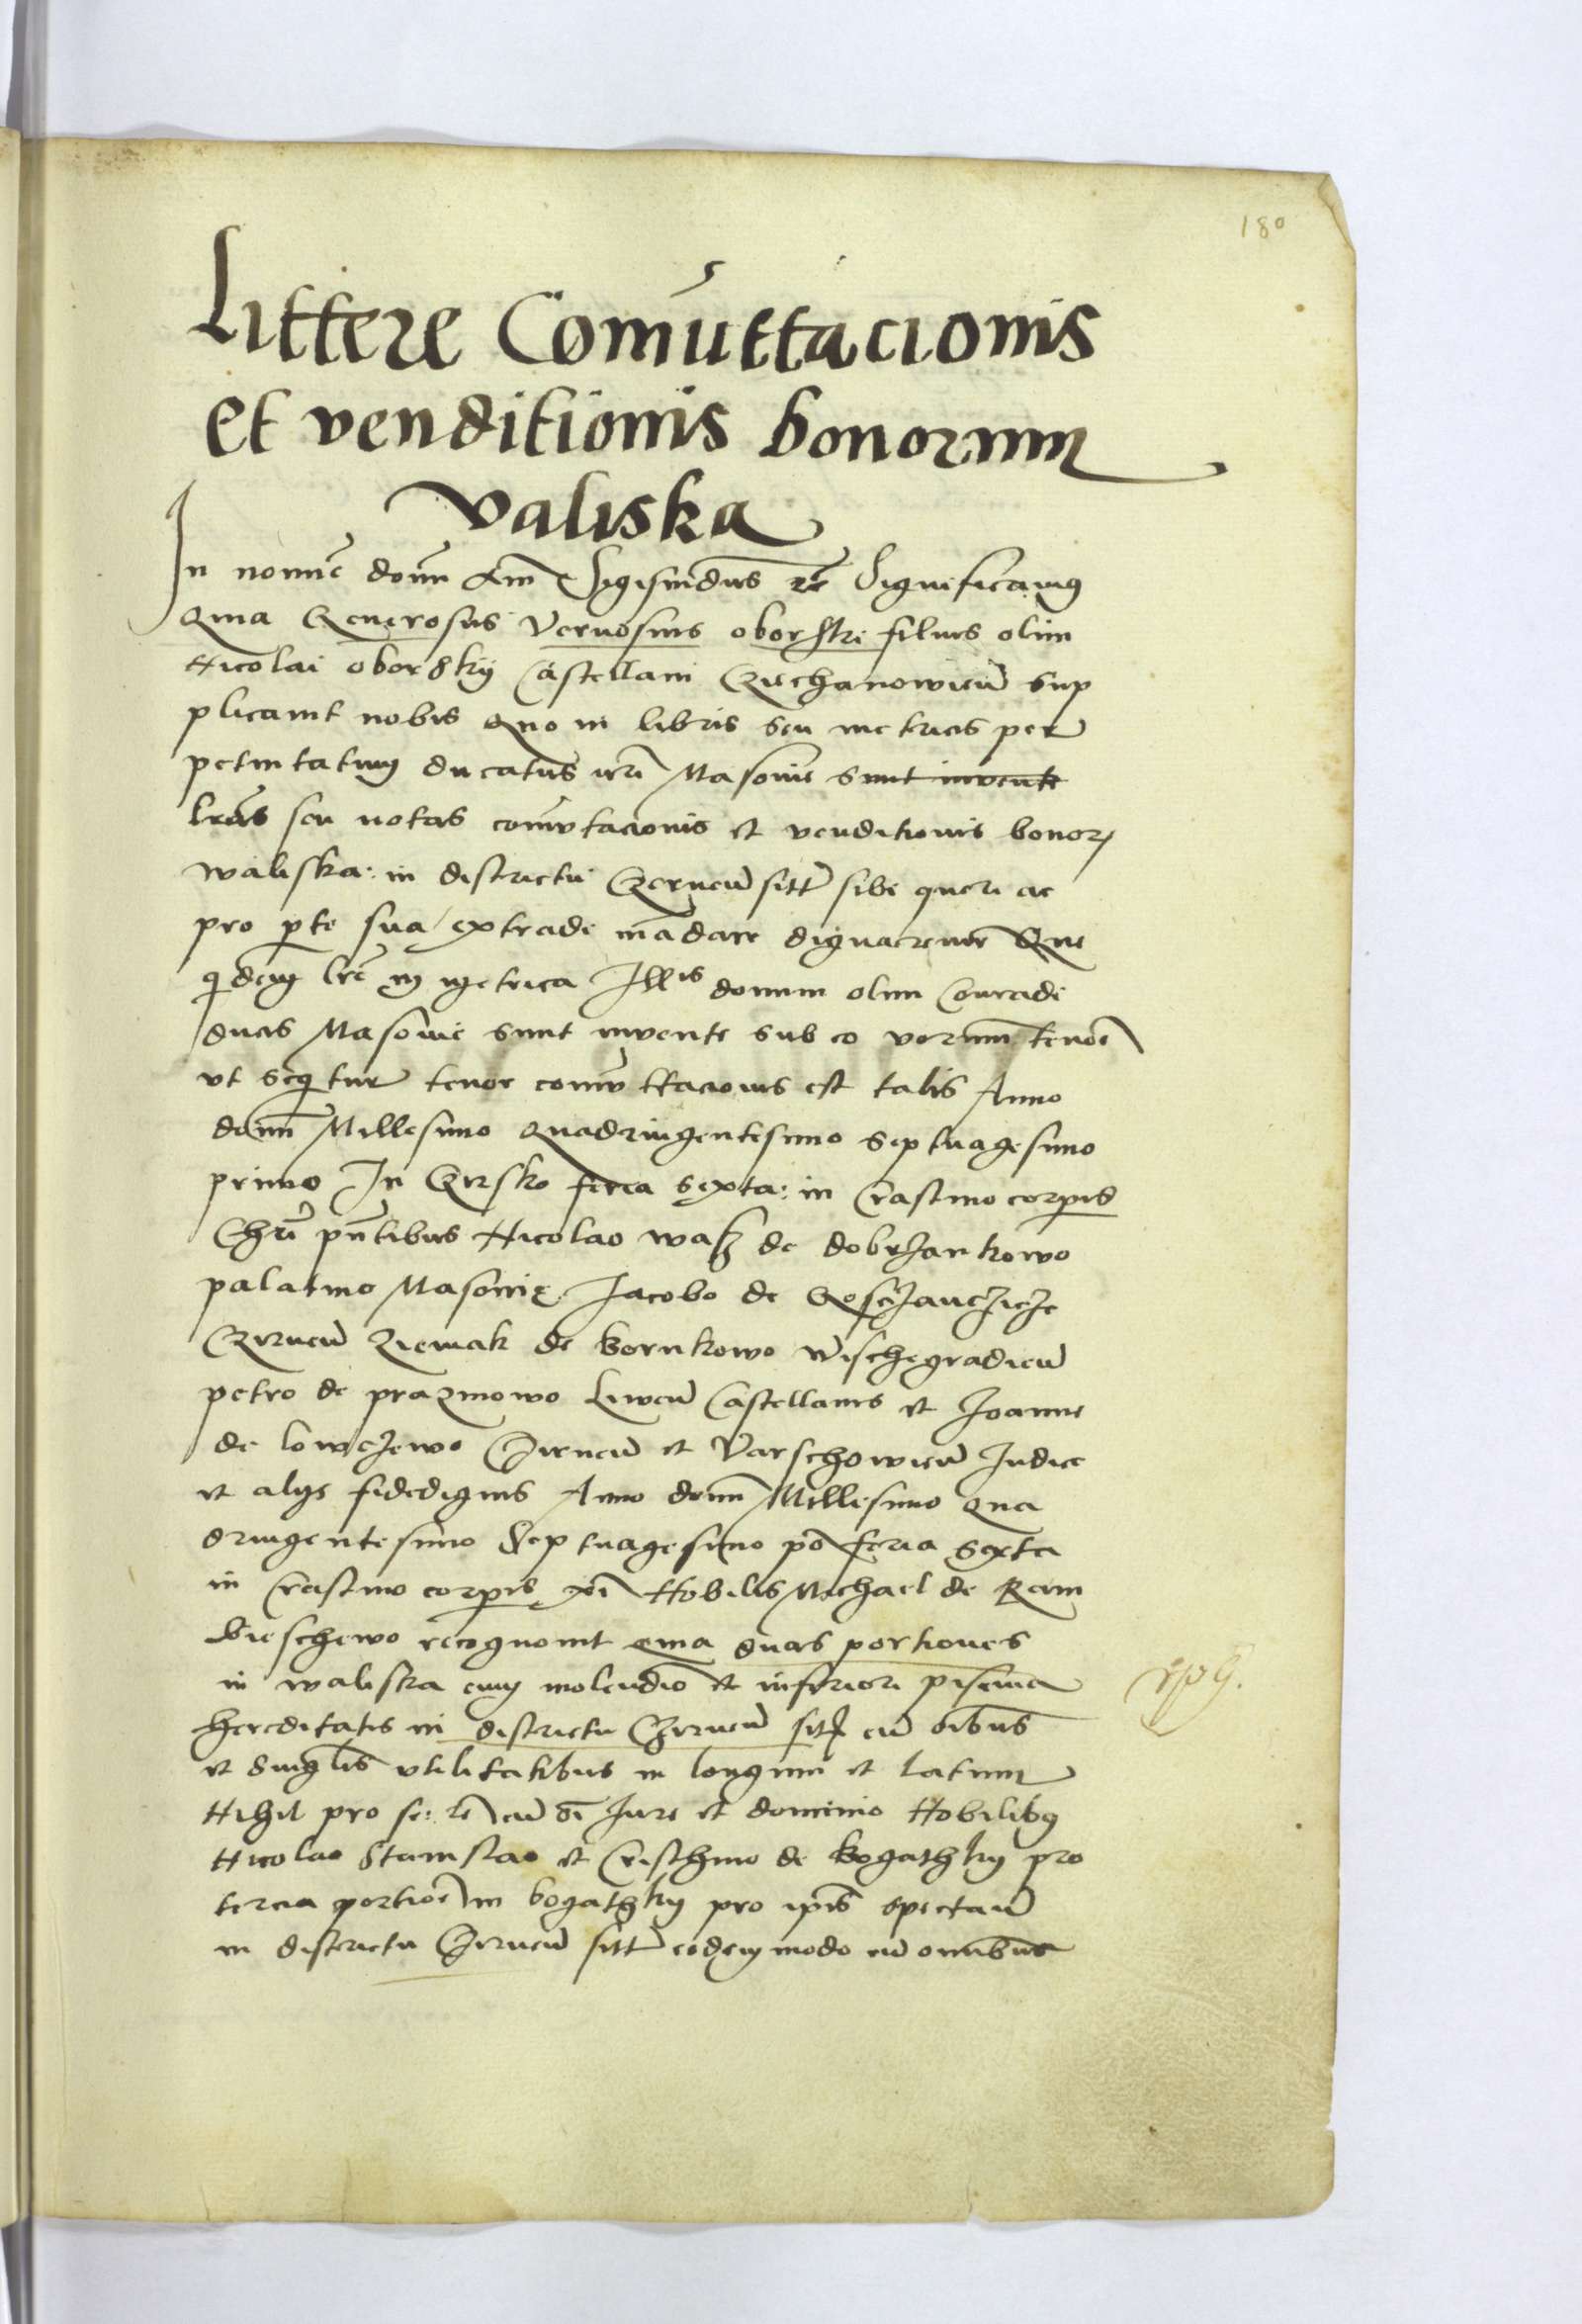 180
Littere Comuttacionis
et venditionis bonorum
valiska
In nomine domini Am Sigismundus re Significamus
Quia Generosus Vernosius oborski filius olim
Nicolai oborskij Castellani Cziechanowien sup
plicavit nobis quo in libris seu metricis per
petuitatum ducatus nri Masovie sunt invente
lras seu notas comutacionis et venditionis bonor
waliska in districtu Czernen sitt sibi queri ac
pro pte sua extradi madare dignaremur Que
qdem lre in metrica Illis domini olim Conradi
ducis Masovie sunt invente sub eo verum tenore
ut sequitur tenor comuttacionis est talis Anno
domini Millesimo quadringentesimo septuagesimo
primo In Czirsko feria sexta in Crastino corpis
Chri pntibus Nicolao wasz de dobrzankowo
palatino Masovie Jacobo de Gosczanczicze
Czirnen Ziemak de kornkowo Wischegradien
petro de prazmowo Liwen Castellanis et Joanne
de lowczewo Czirnen et Varschowien Judice
et alijs fidedignis Anno domini Millesimo qua
dringentesimo Septuagesimo po feria sexta
in Crastino corpis xpi Nobilis Michael de Ram
bieschewo recognovit quia duas portiones
in waliska cum molendio et inferiori piscina
hereditatis in districtu Czirnen sitt cu oibus
et singlis utilitatibus in longum et latum
Nihil pro se re cu oi Jure et dominio Nobilibus
Nicolao Stanislao et Crischino de bogathky pro
tercia portioe in bogathky pro ipis spectan
in districtu Czirnen sitt eodem modo cu omnibus